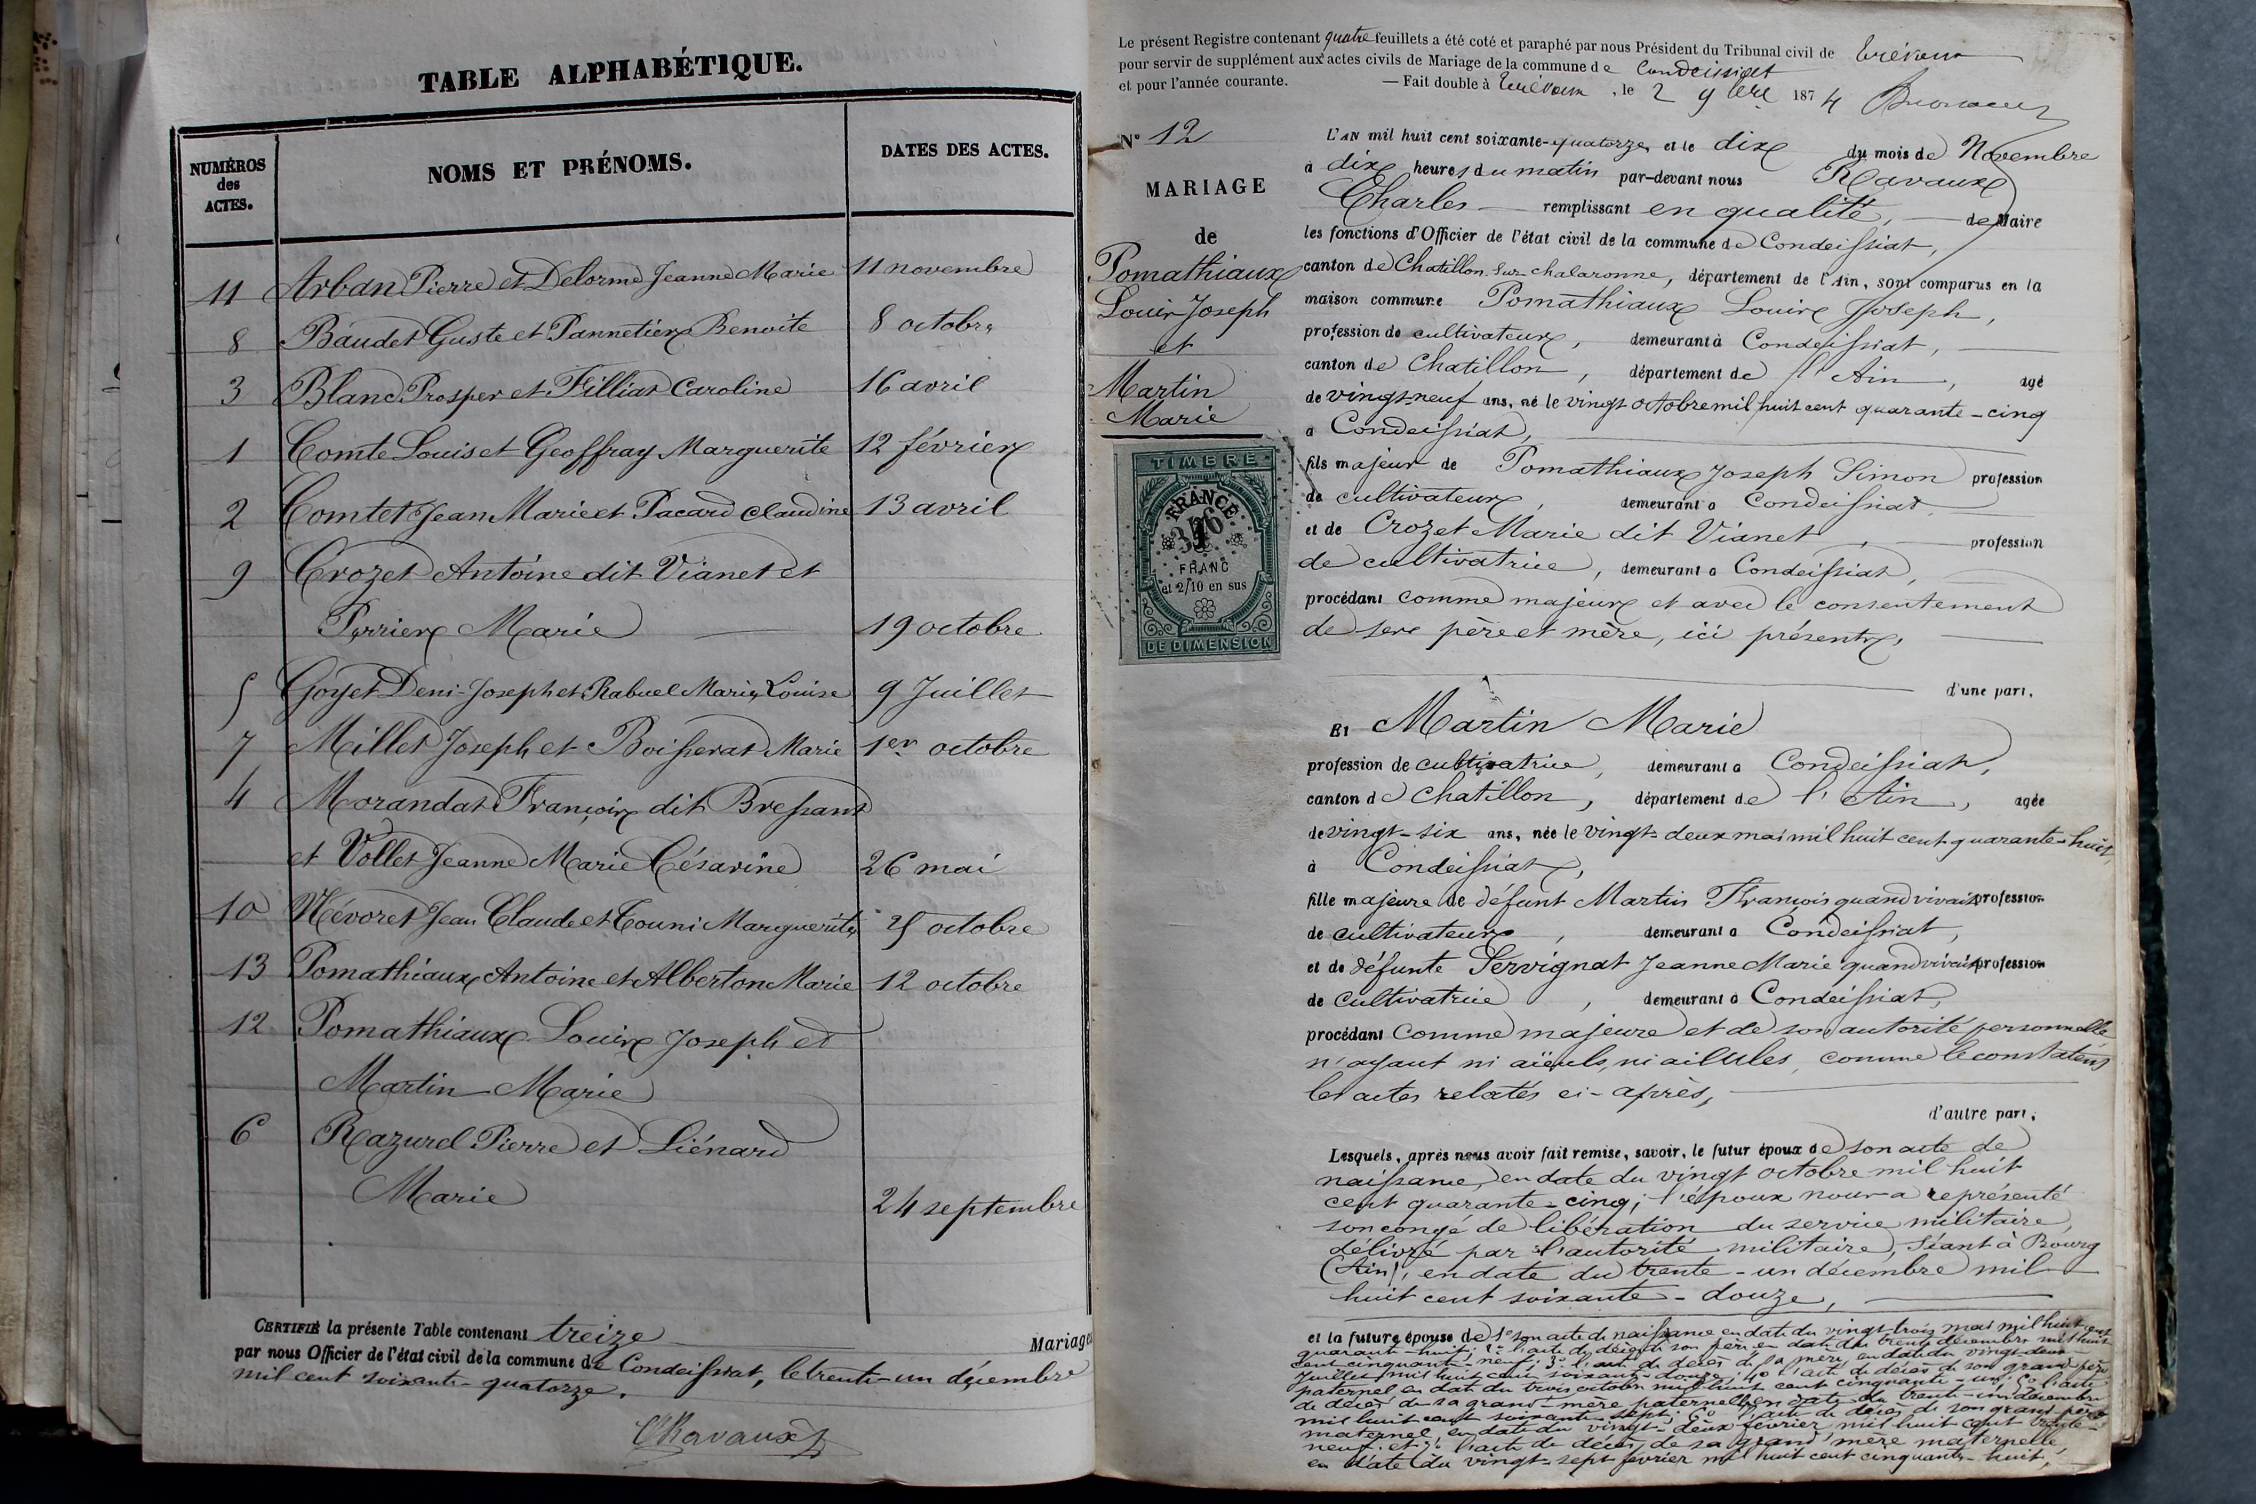 TABLE ALPHABÉTIQUE.
NUMÉROS des ACTES.
NOMS ET PRÉNOMS.
DATES DES ACTES.
11 Arban Pierre et Delorme Jeanne Marie 11 novembre
8 Baudet Guste et Pannetier Benoite 8 octobre
3 Blanc Prosper et Filliat Caroline 16 avril
1 Comte Louis et Geoffray Marguerite 12 février
2 Comtet Jean Marie et Pacard Claudine 13 avril
9 Crozet Antoine dit Vianet et
Perrier Marie 19 octobre
5 Goyet Deni-Joseph et Rabuel Marie Louise 9 Juillet
7 Millet Joseph et Boisserat Marie 1er octobre
4 Morandat François dit Bressant
et Vollet Jeanne Marie Césarine 26 mai
10 Névoret Jean Claude et Touni Marguerite 25 octobre
13 Pomathiaux Antoine et Alberton Marie 12 octobre
12 Pomathiaux Louis Joseph et
Martin Marie
6 Razurel Pierre et Liénard
Marie 24 septembre
CERTIFIÉ la présente Table contenant treize Mariages
par nous Officier de l'état civil de la commune de Condeissiat, le trente-un décembre
mil cent soixante-quatorze.
Ch Ravaux
Le présent Registre contenant quatre feuillets a été coté et paraphé par nous Président du Tribunal civil de Trévoux
pour servir de supplément aux actes civils de Mariage de la commune de Condeissiat
et pour l'année courante. — Fait double à Trévoux, le 2 9bre 1874
N° 12
MARIAGE
de
Pomathiaux
Louis Joseph
et
Martin
Marie
TIMBRE
FRANCE
1
FRANC
et 2/10 en sus
DE DIMENSION
L'AN mil huit cent soixante-quatorze et le dix du mois de Novembre
à dix heures du matin par-devant nous Ravaux
Charles remplissant en qualité, de Maire
les fonctions d'Officier de l'état civil de la commune de Condeissiat,
canton de Chatillon-sur-chalaronne, département de l'Ain, sont comparus en la
maison commune Pomathiaux Louis Joseph,
profession de cultivateur, demeurant à Condeissiat,
canton de Chatillon, département de l'Ain, agé
de vingt-neuf ans, né le vingt octobre mil huit cent quarante-cinq
à Condeissiat,
fils majeur de Pomathiaux Joseph Simon profession
de cultivateur, demeurant à Condeissiat
et de Crozet Marie dit Vianet, profession
de cultivatrice, demeurant à Condeissiat,
procédant comme majeur et avec le consentement
de ses père et mère, ici présents,
d'une part,
Et Martin Marie
profession de cultivatrice, demeurant à Condeissiat,
canton de Chatillon, département de l'Ain, agée
de vingt-six ans, née le vingt-deux mai mil huit cent quarante-huit,
à Condeissiat,
fille majeure de défunt Martin François quand vivait profession
de cultivateur, demeurant à Condeissiat,
et de défunte Servignat Jeanne Marie quand vivait profession
de cultivatrice, demeurant à Condeissiat,
procédant comme majeure et de son autorité personnelle
n'ayant ni aïeuls, ni aïlules, comme le constatent
les actes relatés ci-après,
d'autre part,
Lesquels, après nous avoir fait remise, savoir, le futur époux de son acte de
naissance, en date du vingt octobre mil huit
cent quarante-cinq; l'époux nous a représenté
son congé de libération du service militaire,
délivré par l'autorité militaire, séant à Bourg
(Ain), en date du trente-un décembre mil
huit cent soixante-douze,
et la future épouse de 1° son acte de naissance en date du vingt-trois mai mil huit cent
quarante-huit; 2° l'acte de décès de son père en date du trente décembre mil huit
cent cinquante-neuf; 3° l'acte de décès de sa mère, en date du vingt-deux
Juillet mil huit cent soixante-douze; 4° l'acte de décès de son grand père
paternel en date du trois octobre mil huit cent cinquante-un; 5° l'acte
de décès de sa grand-mère paternelle en date du trente-un décembre
mil huit cent soixante-sept; 6° l'acte de décès de son grand père
maternel, en date du vingt-deux février mil huit cent trente-
neuf et 7° l'acte de décès de sa grand'mère maternelle,
en date du vingt-sept février mil huit cent cinquante-huit,